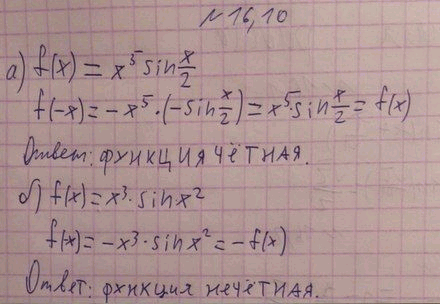 №16,10
а) f(x) = x⁵ sin x/2
f(-x) = -x⁵·(-sin x/2) = x⁵·sin x/2 = f(x)
Ответ: функция чётная.
б) f(x) = x³·sin x²
f(-x) = -x³·sin x² = -f(x)
Ответ: функция нечётная.